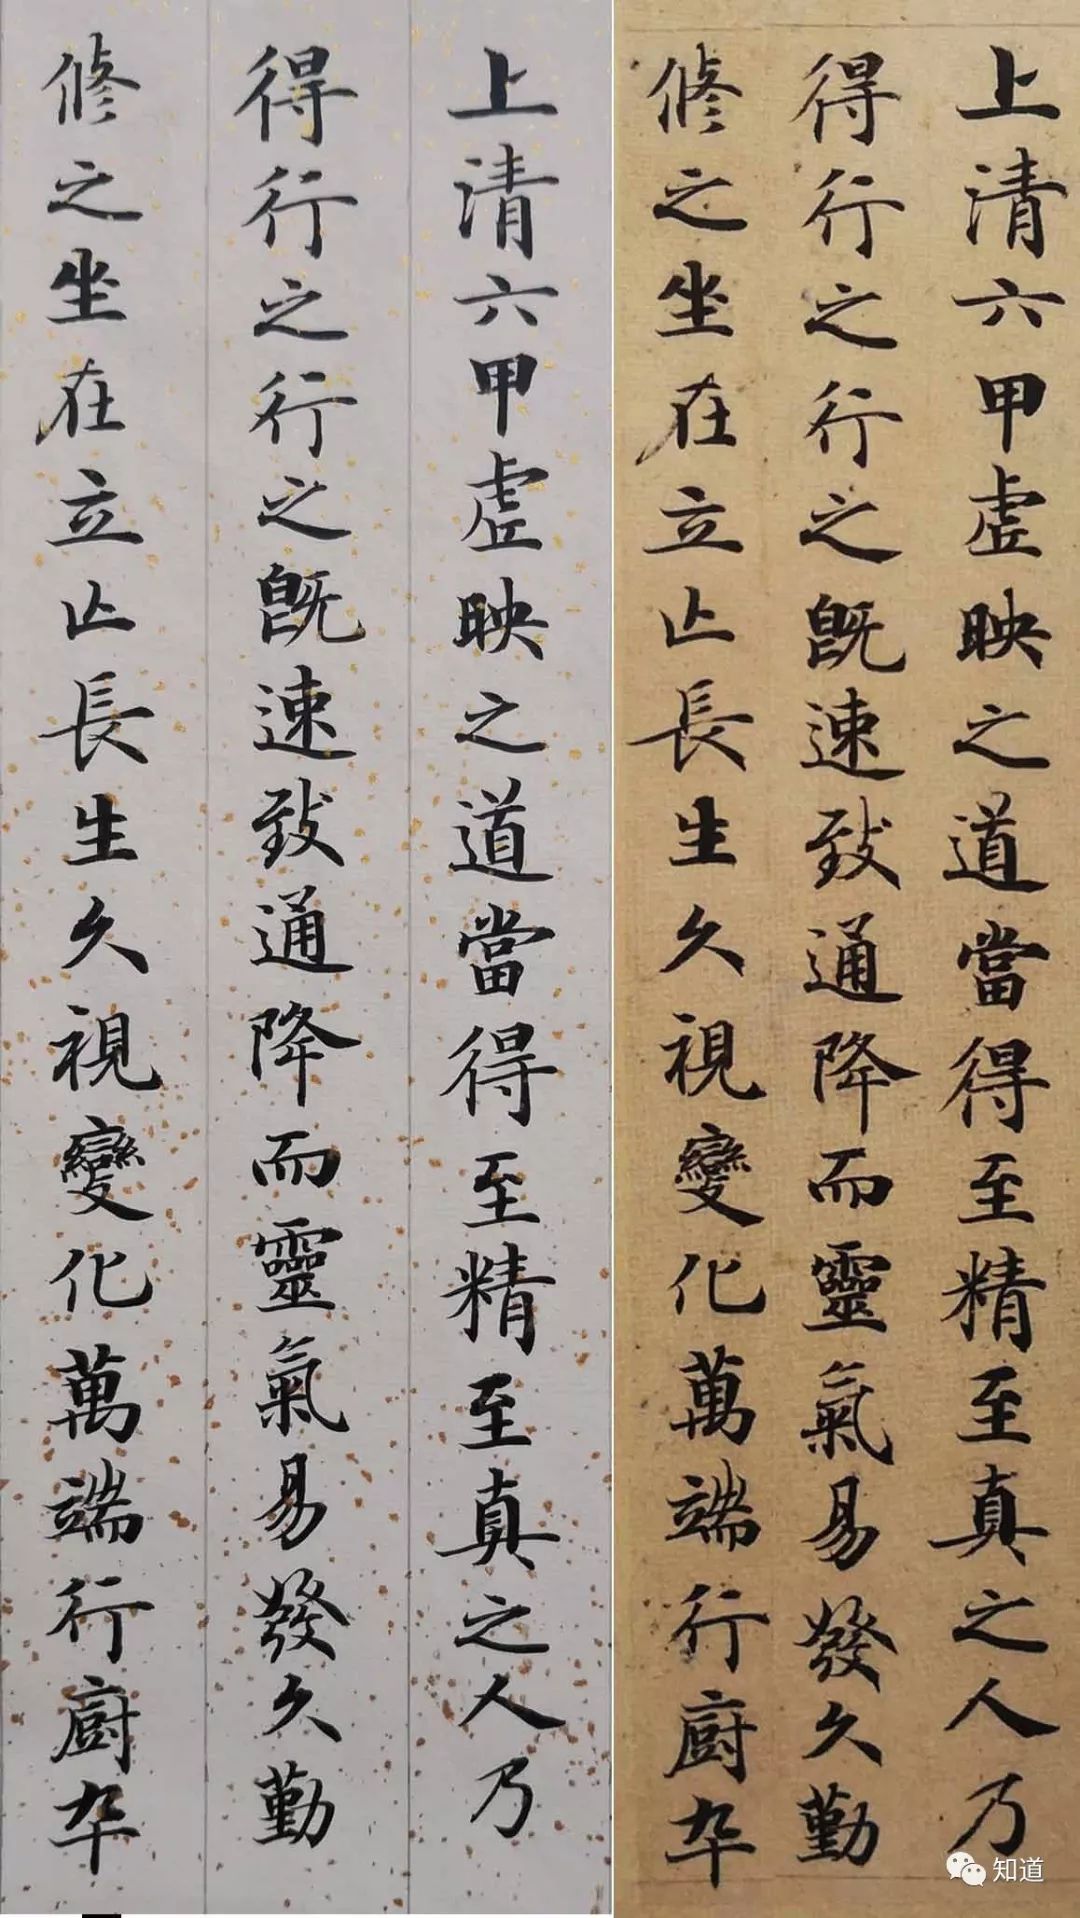 上清六甲虛映之道當得至精至真之人乃
得行之行之既速致通降而靈氣易發久勤
修之坐在立亡長生久視變化萬端行廚卒
上清六甲虛映之道當得至精至真之人乃
得行之行之既速致通降而靈氣易發久勤
修之坐在立亡長生久視變化萬端行廚卒
知道